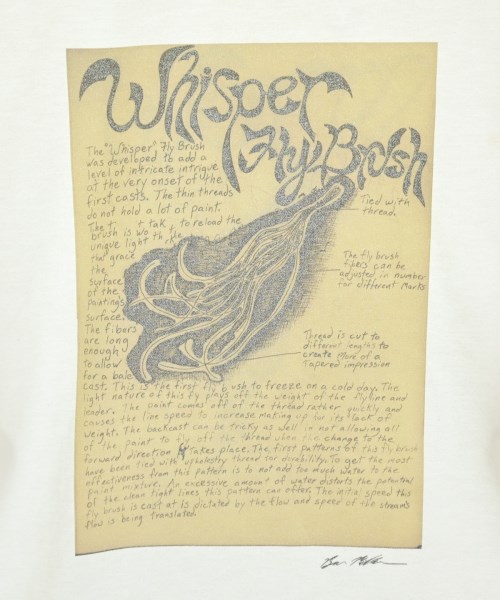 Whisper
Fly Brush
The "Whisper" Fly Brush
was developed to add a
layel of intricate intrigue
at the very onset of the
first casts. The thin threads
do not hold a lot of paint.
The t tak to reload the
brush is wo th the
unique light
that grace
the
surface
of the
paintings
surface.
The fibers
are long
enough
to allow
for a balc
cast. This is the first fly b ush to freeze on a cold day. The
light nature of this fly plays off the weight of the fly line and
leader. The paint comes off of the thread rather quickly and
causes the line speed to increase making up for its lack of
weight. The backcast can be tricky as well in not allowing all
of the paint to fly off the thread when the change to the
forward direction takes place. The first patterns of this fly brush
have been tied with upholstry thread for durability. To get the most
effectiveness from this pattern is to not add too much water to the
paint mixture. An excessive amount of water distorts the potential
of the clean tight lines this pattern can offer. The initial speed this
fly brush is cast at is dictated by the flow and speed of the stream's
flow is being translated.
Tied with
thread.
The fly brush
fibers can be
adjusted in number
for different Marks
Thread is cut to
different lengths to
create more of a
Tapered impression